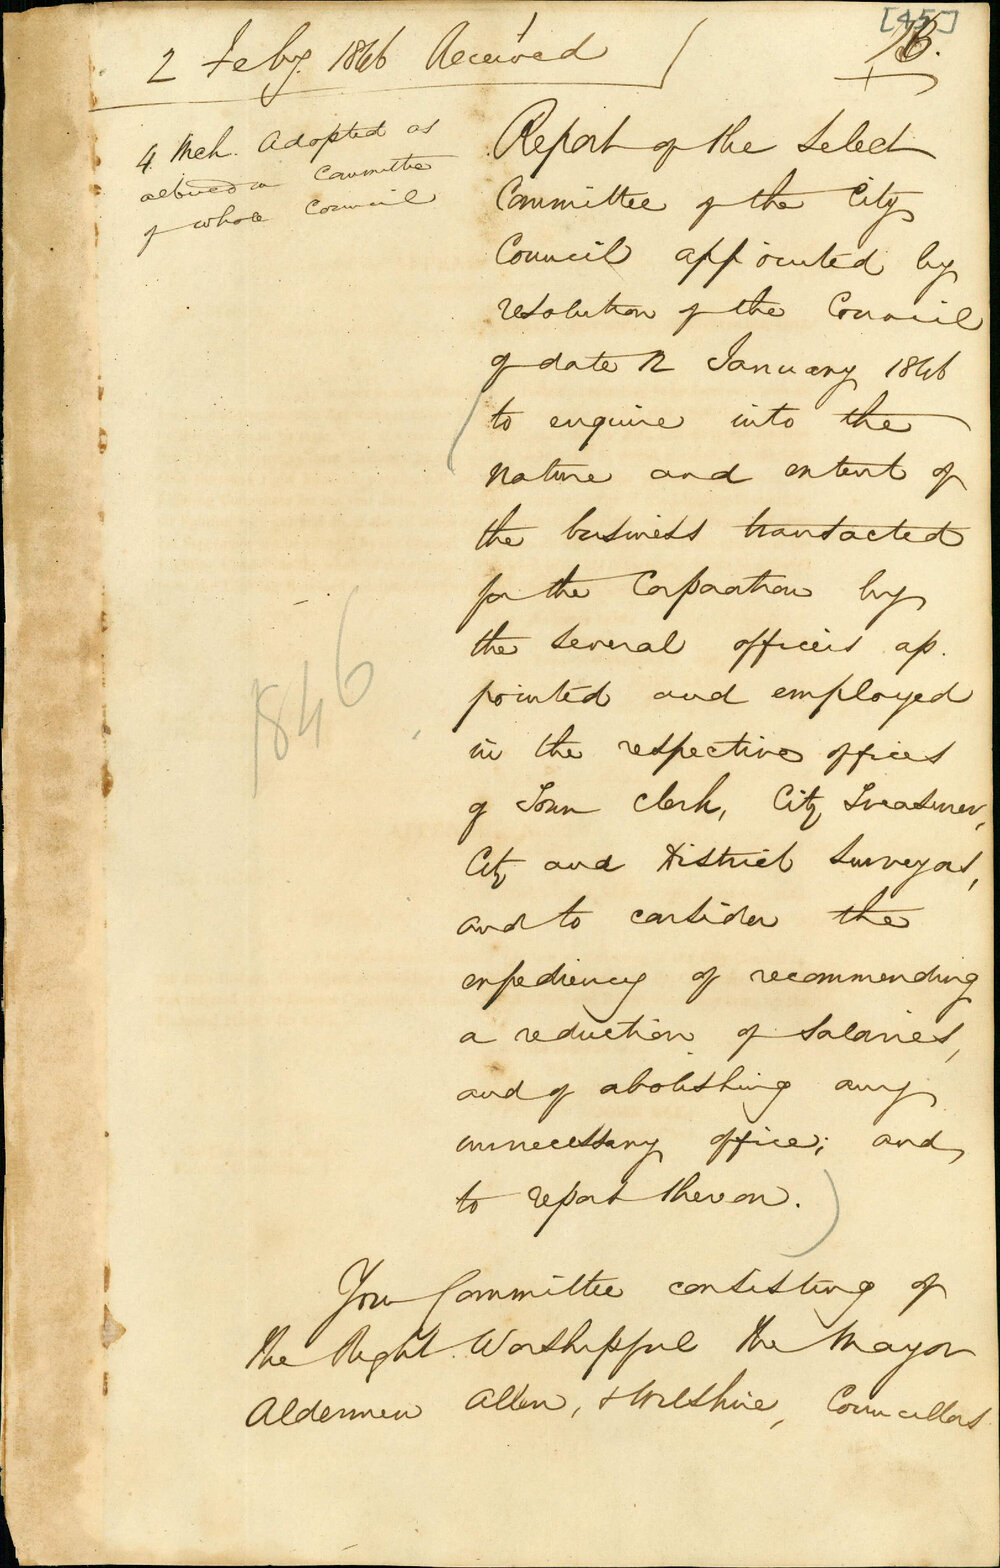 [45]
2 Feby. 1846 Received
B.
4 Mch. Adopted as
altered in Committee
of whole Council
Report of the Select
Committee of the City
Council appointed by
resolution of the Council
of date 12 January 1846
to enquire into the
nature and extent of
the business transacted
for the Corporation by
the several officers ap.
pointed and employed
in the respective offices
of Town Clerk, City Treasurer,
City and District Surveyors,
and to consider the
expediency of recommending
a reduction of Salaries,
and of abolishing any
unnecessary office; and
to report thereon.
1846
Your Committee consisting of
the Right Worshipful the Mayor
Aldermen Allen, & Wilshire, Councillors